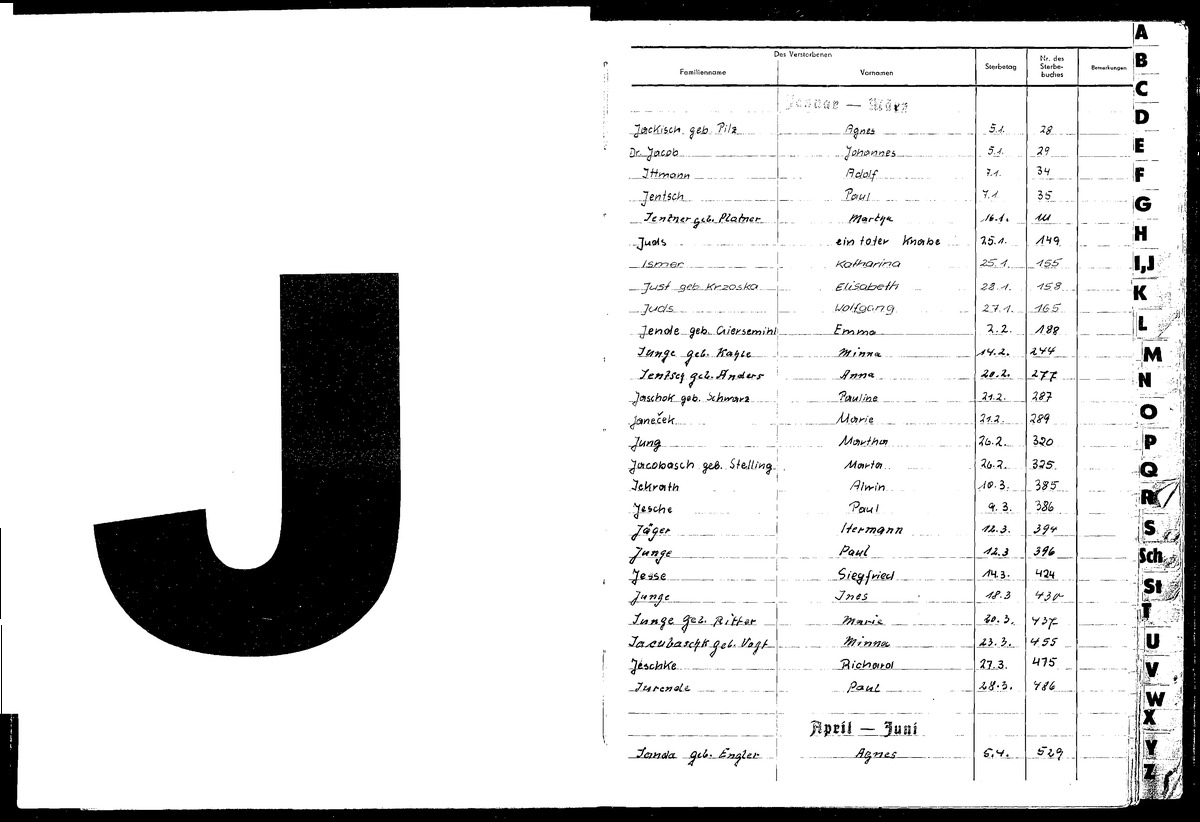 J
Des Verstorbenen
Familienname Vornamen Sterbetag Nr. des Sterbe-buches Bemerkungen
Januar — März
Jackisch geb. Pilz Agnes 5.1. 28
Dr. Jacob Johannes 5.1. 29
Ittmann Adolf 7.1. 34
Jentsch Paul 7.1. 35
Jentner geb. Platner Martha 16.1. 111
Juds ein toter Knabe 25.1. 149
Ismer Katharina 25.1. 155
Just geb. Krzoska Elisabeth 28.1. 158
Juds Wolfgang 27.1. 165
Jende geb. Emma 2.2. 188
Junge geb. Kahle Minna 14.2. 244
Jentsch geb. Anders Anna 20.2. 277
Jaschok geb. Schwarz Pauline 21.2. 287
Janeček Marie 21.2. 289
Jung Martha 26.2. 320
Jacobasch geb. Stelling Marta 26.2. 325
Ickrath Alwin 10.3. 385
Jesche Paul 9.3. 386
Jäger Hermann 12.3. 394
Junge Paul 12.3 396
Jesse Siegfried 14.3. 424
Junge Ines 18.3
Junge geb. Ritter Marie 20.3. 437
Jacubaschk geb. Vogt Minna 23.3. 455
Jeschke Richard 27.3. 475
Jurende Paul 28.3. 486
April — Juni
Janda geb. Engler Agnes 5.4. 529
A
B
C
D
E
F
G
H
I,J
K
L
M
N
O
P
Q
R
S
Sch
St
T
U
V
W
X
Y
Z